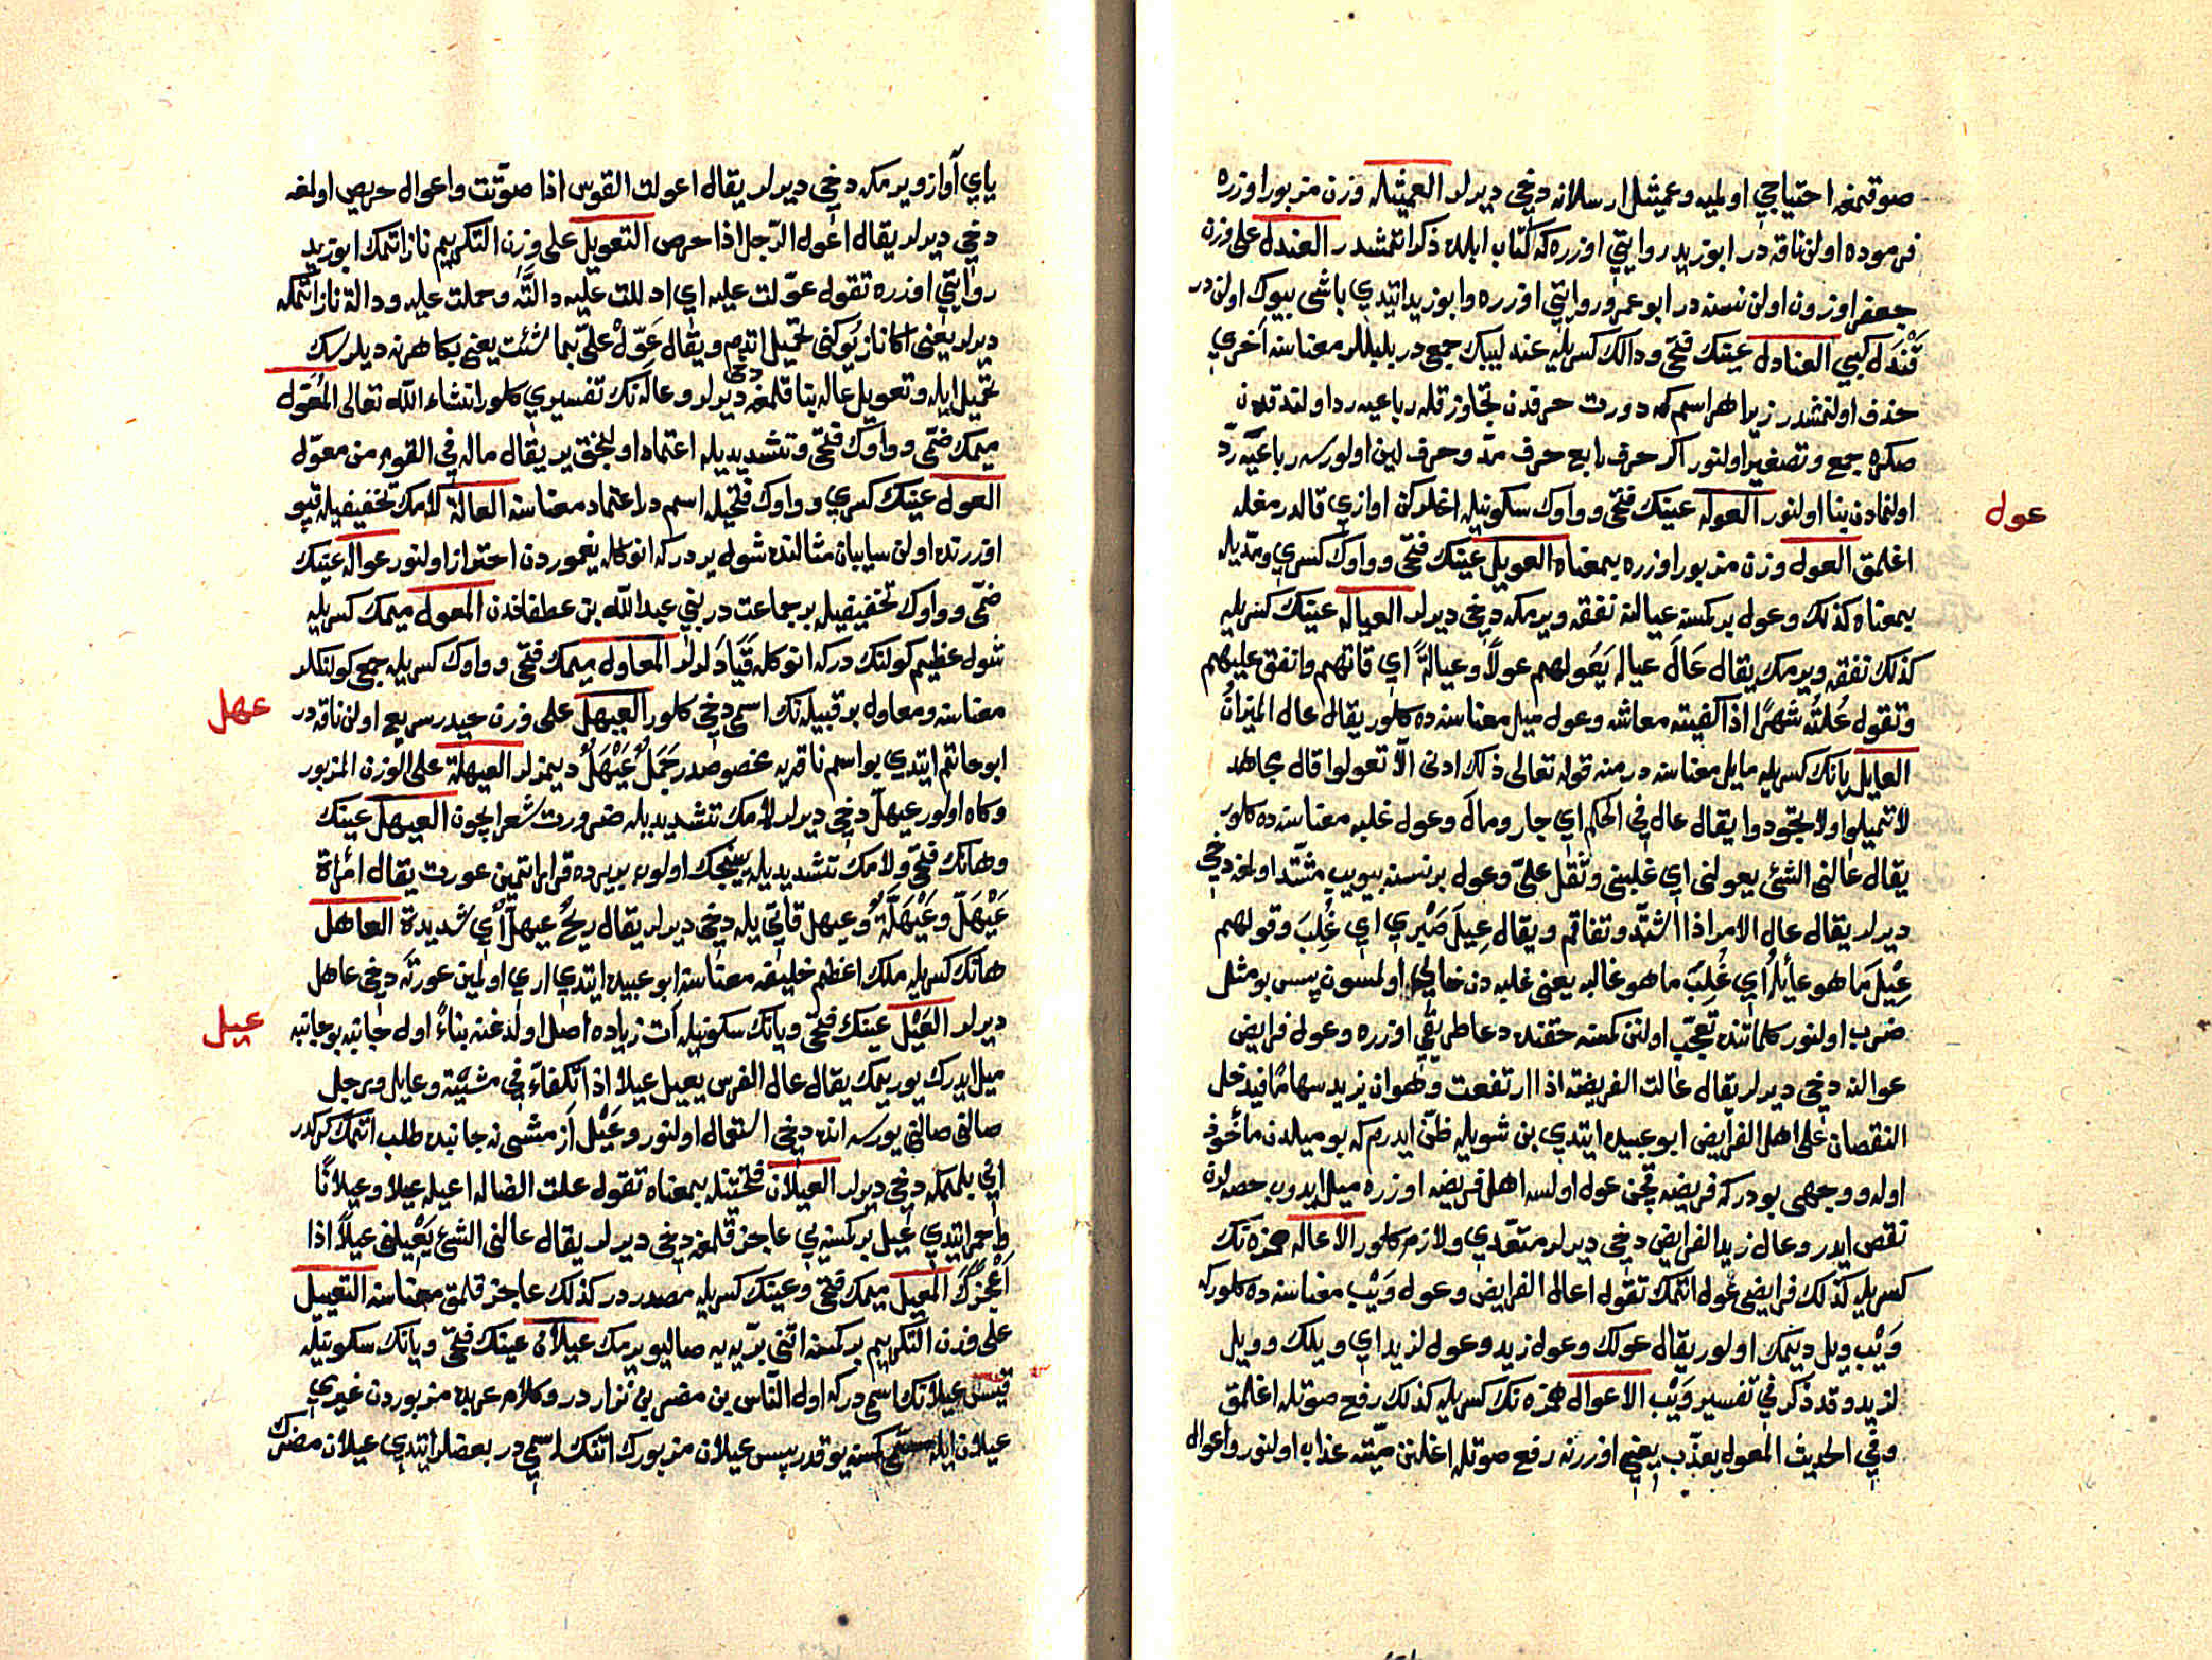 صوقمغه احتياجي اولميه وعميثل ارسلانه دخي ديرلر العميثله وزن مزبور اوزره
فرموده اولن ناقه در ابوزيد روايتي اوزره كه كتاب ابلده ذكر اتمشدر العندل على وزن
جعفر اوزون اولن نسنه در ابو عمرو روايتي اوزره وابوزيد ايتدي باشى بيوك اولن در
قندل كبي العنادل عينك فتحى ودالك كسريله عندليبك جمعى در بلبللر معناسنه آخري
حذف اولنمشدر زيرا هر اسم كه دورت حرفدن تجاوز قله رباعيه رد اولندقدن
صكره جمع وتصغير اولنور اكر حرف رابع حرف مد وحرف لين اولورسه رباعيه رد
اولنمادن بنا اولنور العوله عينك فتحى وواوك سكونيله اغلركن اوازي قالدرمغله
عول
اغلمق العول وزن مزبور اوزره بمعناه العويل عينك فتحى وواوك كسري ومديله
بمعناه كذلك وعول بر كمسنه عيالنه نفقه ويرمكه دخي ديرلر العياله عينك كسريله
كذلك نفقه ويرمك يقال عَالَ عياله يَعُولهم عولاً وعيالةً اي قاتهم وانفق عليهم
وتقول عُلتُه شهرًا اذا كفيته معاشه وعول ميل معناسنه ده كلور يقال عال الميزانُ
العايل يانك كسريله مايل معناسنه در منه قوله تعالى ذلك ادنى الّا تعولوا قال مجاهد
لا تميلوا ولا تجوروا يقال عال في الحكم اي جار ومالَ وعول غلبه معناسنه ده كلور
يقال عالني الشئ يعولني اي غلبني وثقل علىّ وعول بر نسنه بيويب مشتد اولمغه دخي
ديرلر يقال عال الامر اذا اشتدّ وتفاقم ويقال عِيلَ صَبْري اي غُلِبَ وقولهم
عِيْلَ مَا هو عَائِلُه اي غُلِبَ ما هو غالبه يعنى غلبه دن خالي اولمسون پس بو مثل
ضرب اولنور كلماتنده تعجّب اولنن كمسنه حقنده دعا طريقي اوزره وعول فرايض
عوالنه دخي ديرلر يقال عالت الفريضه اذا ارتفعت وهو ان يزيد سهامًا فيدخل
النقصان على اهل الفرايض ابو عبيده ايتدي بن شويله ظنّ ايدرم كه بو ميلدن مأخوذ
اوله ووجهى بودر كه فريضه قچن عول اولسه اهل فريضه اوزره ميل ايدوب حصه لرده
نقص ايدر وعال زيد الفرايض دخي ديرلر متعدي ولازم كلور الاعاله همزه نك
كسريله كذلك فرايضى عول اتمك تقول اعال الفرايض وعول وَيْب معناسنه ده كلور كه
وَيْب ويل ديمك اولور يقال عولك وعول زيد وعول لزيد اي ويلك وويل
لزيد وقد ذكر في تفسير وَيْب الاعوال همزه نك كسريله كذلك رفع صوتله اغلمق
وفي الحديث المعول يعذّب يعني اوزرنه رفع صوتله اغلنن ميّته عذاب اولنور واعوال
ياي آواز ويرمكه دخي ديرلر يقال اعولت القوس اذا صوّتت واعوال حريص اولمغه
دخي ديرلر يقال اعول الرّجل اذا حرص التعويل على وزن التكريم ناز اتمك ابوزيد
روايتي اوزره تقول عوّلت عليه اي ادللت عليه دالّةً وحملت عليه ودالة ناز اتمكه
ديرلر يعنى اكا ناز يوكنى تحميل اتدم ويقال عَوِّلْ عَلَىّ بما شئت يعنى بكا هر نه ديلرسك
تحميل ايله وتعويل عاله بنا قلمغه دخى ديرلر وعاله نك تفسيري كلور انشاء الله تعالى المُعَوَّل
ميمك ضمّى وواوك فتحى وتشديديله اعتماد اولنجق ير يقال ماله في القوم من معوّل
العول عينك كسري وواوك فتحيله اسم در اعتماد معناسنه العالة لامك تخفيفيله قپو
اوزرنده اولن سايبان مثالنده شول يردر كه انوكله يغموردن احتراز اولنور عواله عينك
ضمّى وواوك تخفيفيله بر جماعت در بني عبد الله بن عطفاندن المعول ميمك كسريله
شول عظيم كولنك در كه انوكله قَيَا دَلرلر المعاول ميمك فتحى وواوك كسريله جمعى كولنكلر
معناسنه ومعاول بر قبيله نك اسمى دخي كلور العيهل على وزن عيدر سريع اولن ناقه در
عهل
ابو حاتم ايتدي بو اسم ناقه يه مخصوصدر جَمَلٌ عَيْهَلٌ ديمزلر العيهلة على الوزن المزبور
وكاه اولور عيهلّ دخي ديرلر لامك تشديديله ضرورت شعر ايچون العيهل عينك
وهانك فتحى ولامك تشديديله يبنجك اولوب بر يرده قرار اتمين عورت يقال امْراة
عَيْهَلّ وعَيْهَلَّةٌ وعيهل قاتي يله دخي ديرلر يقال ريحٌ عيهلٌ اي شديدة العاهل
هانك كسريله ملك اعظم خليفه معناسنه ابو عبيده ايتدي اري اولمين عورته دخي عاهل
ديرلر العَيْل عينك فتحى ويانك سكونيله آت زياده اصل اولدغنه بناءً اول جانبه بو جانبه
عيل
ميل ايدرك يوريمك يقال عال الفرس يعيل عيلا اذا تكفاءَ في مشيته وعايل وبر رجل
صالنى صالنى يورسه انده دخي استعمال اولنور وعَيْل آز مشى نه جانبده طلب اتمك كركدر
انى بلممكه دخي ديرلر العيلان فتحتينله بمعناه تقول علت الضاله اعيله عيلا وعيلانًا
احمر ايتدي عيل بر كمسنه يي عاجز قلمغه دخي ديرلر يقال عالني الشئ يَعْيلني عيلاً اذا
أَعْجَزَكَ المعيل ميمك فتحى وعينك كسريله مصدردر كذلك عاجز قلمق معناسنه التعييل
على وزن التكريم بر كمسنه اتنى برّيه يه صاليويرمك عيلان عينك فتحى ويانك سكونيله
قيس عيلانك اسمى در كه اول الناس بن مضر بن نزار در وكلام عربده مزبوردن غيري
عيلان ايله كمسنه يوقدر پس عيلان مزبورك اتنك اسمى در بعضلر ايتدي عيلان مضرك